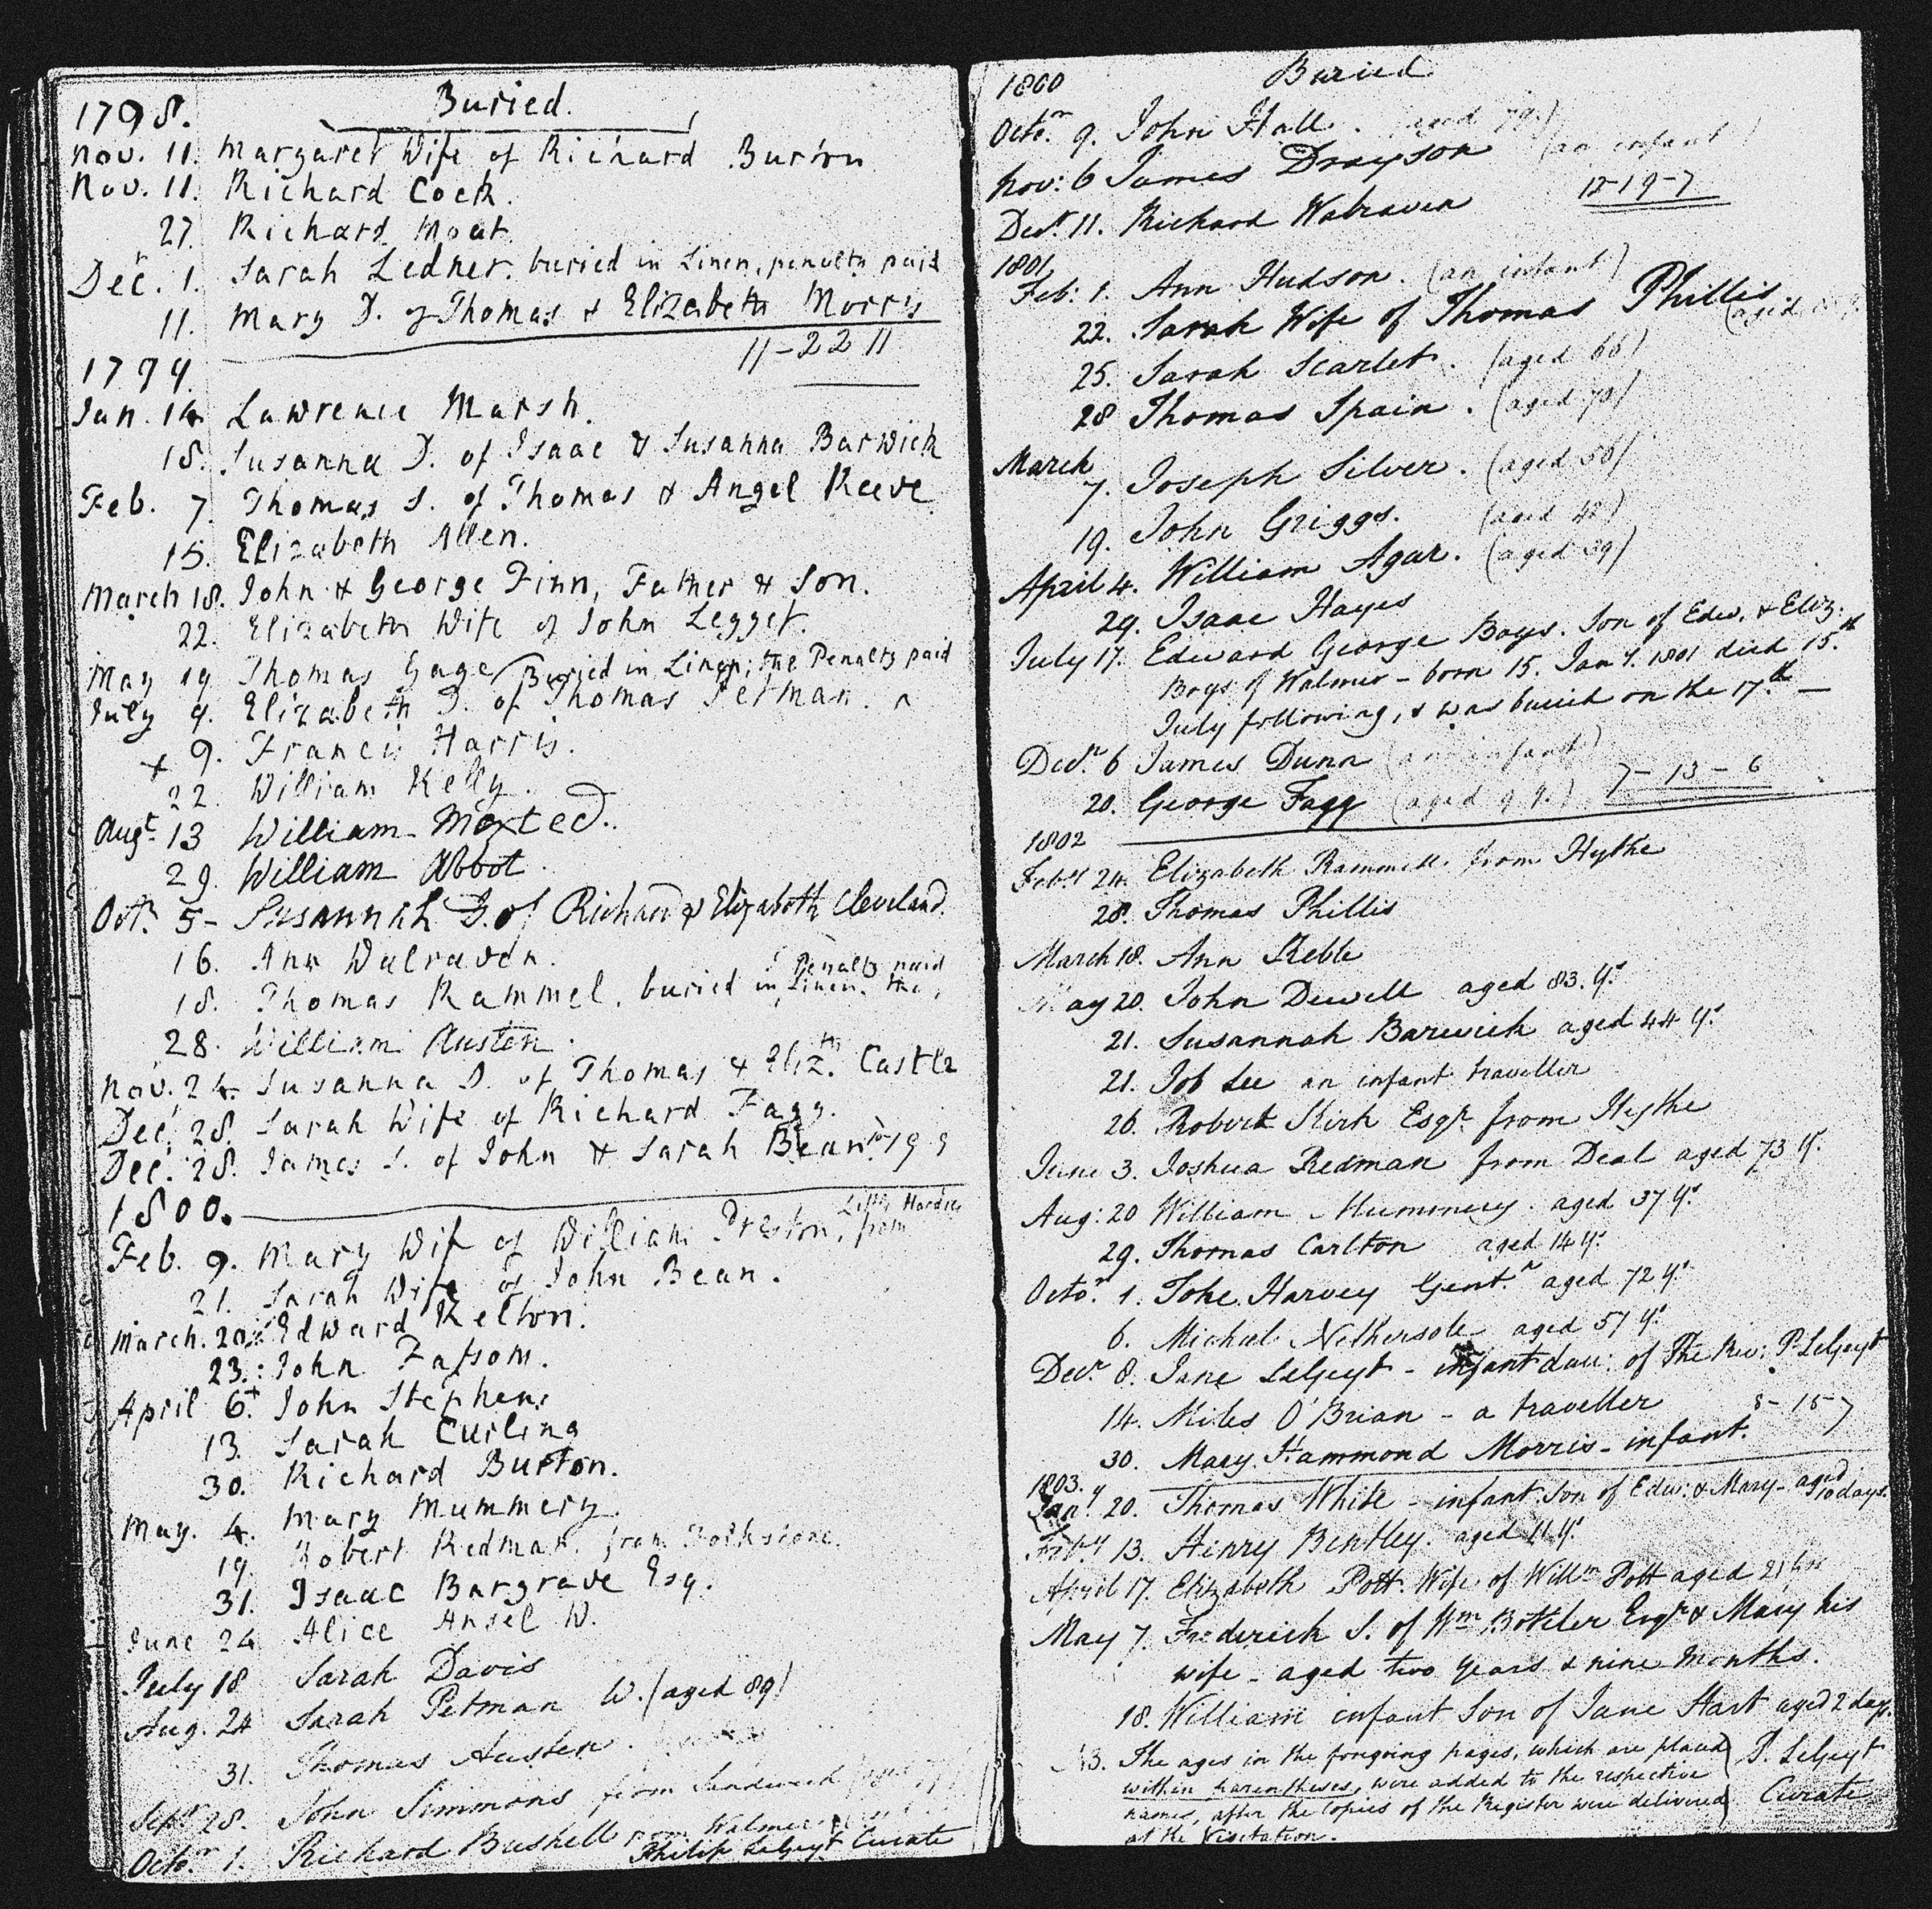 1798. Buried.
Nov. 11. Margaret Wife of Richard Burton
Nov. 11. Richard Cock.
27. Richard Moat.
Decr. 1. Sarah Ledner. buried in Linen, penalty paid
11. Mary D. of Thomas & Elizabeth Morris
11-22 11
1799.
Jan. 14 Lawrence Marsh.
18. Susanna D. of Isaac & Susanna Barwick
Feb. 7. Thomas S. of Thomas & Angel Reeve.
15. Elizabeth Allen.
March 18. John & George Finn, Father & Son.
22. Elizabeth Wife of John Legget.
May 19 Thomas Gage (Buried in Linen; the Penalty paid
July 9. Elizabeth D. of Thomas Petman.
+ 9. Francis Harris.
22. William Kelly.
Augt. 13 William Moxted.
29. William Abbot.
Octr. 5- Susannah D. of Richard & Elizabeth Cleveland.
16. Ann Walraven.
18. Thomas Rammel. buried in Linen. the Penalty paid
28. William Austen.
Nov. 24. Susanna D. of Thomas & Elizth. Castle
Dec. 28. Sarah Wife of Richard Fagg.
Dec. 28. James S. of John & Sarah Bean.
1800.
Feb. 9. Mary Wife of William Preston, from Little Hardres
21. Sarah Wife of John Bean.
March. 20. Edward Kelton.
23. John Fassom.
April 6. John Stephens
13. Sarah Curling
30. Richard Burton.
May. 4. Mary Mummery.
19. Robert Redman. from Folkstone.
31. Isaac Bargrave Esq.
June 24 Alice Ansel W.
July 18 Sarah Davis
Aug. 24 Sarah Petman W. (aged 89)
31. Thomas Austen.
Septr. 28. John Simmons from Sandwich
Octor. 1. Richard Bushell from Walmer
Philip LeGeyt Curate
1800 Buried
Octor. 9. John Hall. (aged 79.)
Nov: 6 James Drayson (an infant)
Decr. 11. Richard Walraven 12-19-7
1801
Feb: 1. Ann Hudson. (an infant)
22. Sarah Wife of Thomas Phillis. (aged
25. Sarah Scarlet. (aged 66)
28 Thomas Spain. (aged 70)
March
7. Joseph Silver. (aged 56)
19. John Griggs. (aged 48)
April 4. William Agar. (aged 39)
29. Isaac Hayes
July 17. Edward George Boys. Son of Edw. & Eliz.
Boys of Walmer - born 15. Jany. 1801 died 15.th
July following, & was buried on the 17.th —
Decr. 6 James Dunn (an infant)
20. George Fagg (aged 9 y.) 7-13-6
1802
Feby. 24. Elizabeth Rammell from Hythe
28. Thomas Phillis
March 18. Ann Keble
May 20. John Dewell aged 83. yrs
21. Susannah Barwick aged 44 yrs
21. Job Lee an infant traveller
26. Robert Kirk Esqr. from Hythe
June 3. Joshua Redman from Deal aged 73 yrs.
Aug: 20 William Mummery. aged 37 yrs
29. Thomas Carlton aged 14 yrs.
Octor. 1. John Harvey Gent.n aged 72 yrs.
6. Michael Nethersole aged 57 yrs
Decr. 8. Jane LeGeyt - infant dau: of The Rev: P. LeGeyt
14. Miles O'Brian - a traveller 8-15-7
30. Mary Hammond Morris - infant.
1803.
Jany. 20. Thomas White - infant Son of Edw. & Mary - aged 10 days.
Feby. 13. Henry Bentley. aged 11 yrs
April 17. Elizabeth Pott. Wife of Willm Pott aged 21 yrs
May 7. Frederick S. of Wm. Boteler Esqr. & Mary his
wife - aged two years & nine months.
18. William infant Son of Jane Hart aged 2 days.
NB. The ages in the foregoing pages, which are placed
within parentheses, were added to the respective
names, after the Copies of the Register were delivered
at the Visitation.
P. LeGeyt
Curate